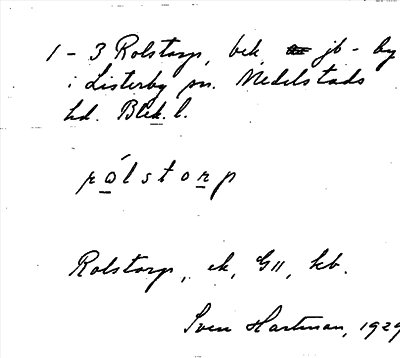 1 - 3 Rolstorp, bek. jb - by
i Listerby sn. Medelstads
hd. Blek. l.
rólstorp
Rolstorp, ek, G11, kb.
Sven Hartman, 1929